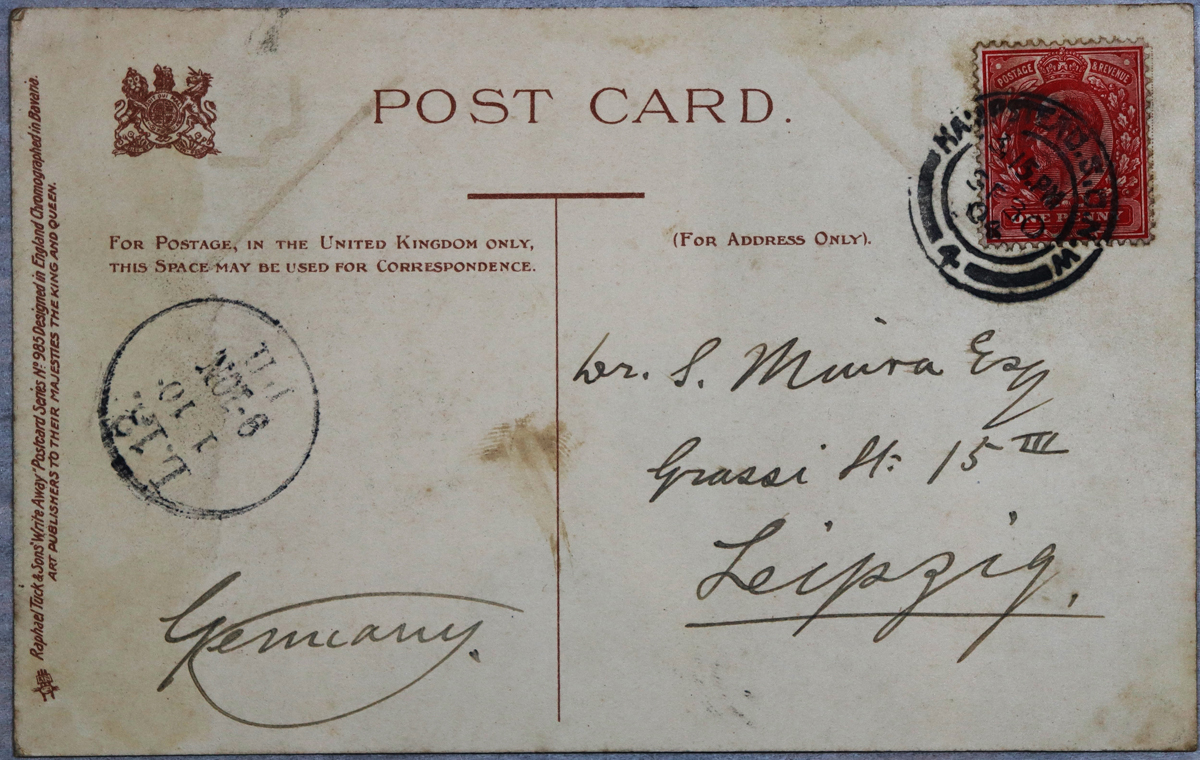 POST CARD.
POSTAGE & REVENUE
ONE PENNY
HAMPSTEAD. S.O. N.W
4
15. PM
FOR POSTAGE, IN THE UNITED KINGDOM ONLY,
THIS SPACE MAY BE USED FOR CORRESPONDENCE.
(FOR ADDRESS ONLY).
L.13
1 10.
NOV-6
Dr. S. Miura Esq
Grassi St: 15 III
Leipzig.
Germany.
Raphael Tuck & Sons' "Write Away" Postcard Series Nº 985 Designed in England Chromographed in Bavaria.
ART PUBLISHERS TO THEIR MAJESTIES THE KING AND QUEEN.